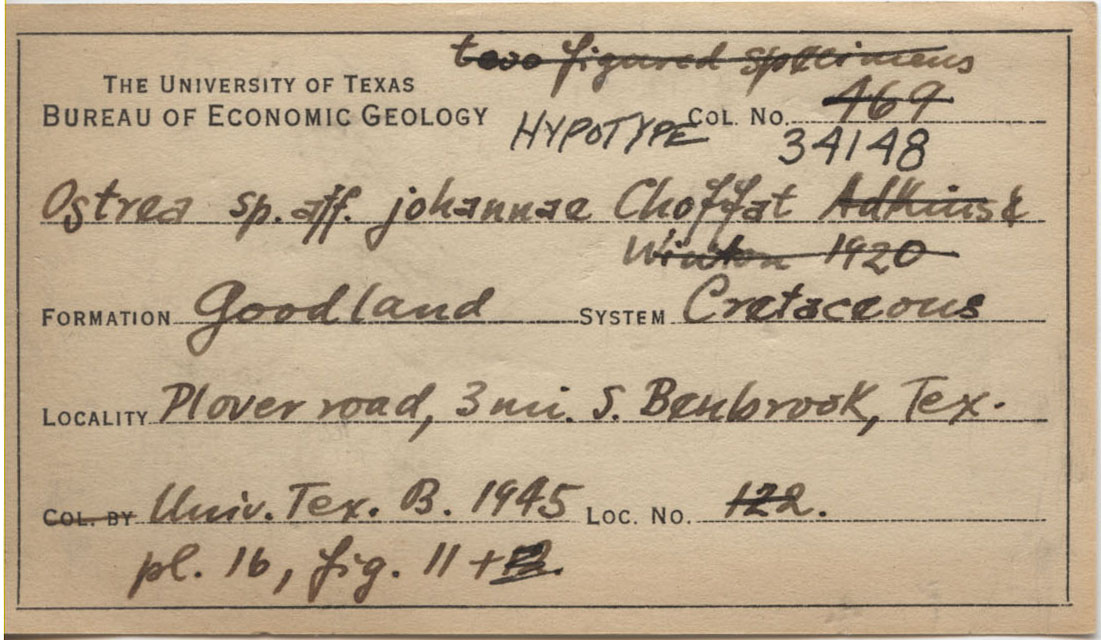 two figured specimens
THE UNIVERSITY OF TEXAS
BUREAU OF ECONOMIC GEOLOGY HYPOTYPE COL. NO. 469
34148
Ostrea sp. aff. johannae Choffat Adkins &
Winton 1920
FORMATION Goodland SYSTEM Cretaceous
LOCALITY Plover road, 3 mi. S. Benbrook, Tex.
COL. BY Univ. Tex. B. 1945 LOC. NO. 122.
pl. 16, fig. 11 +